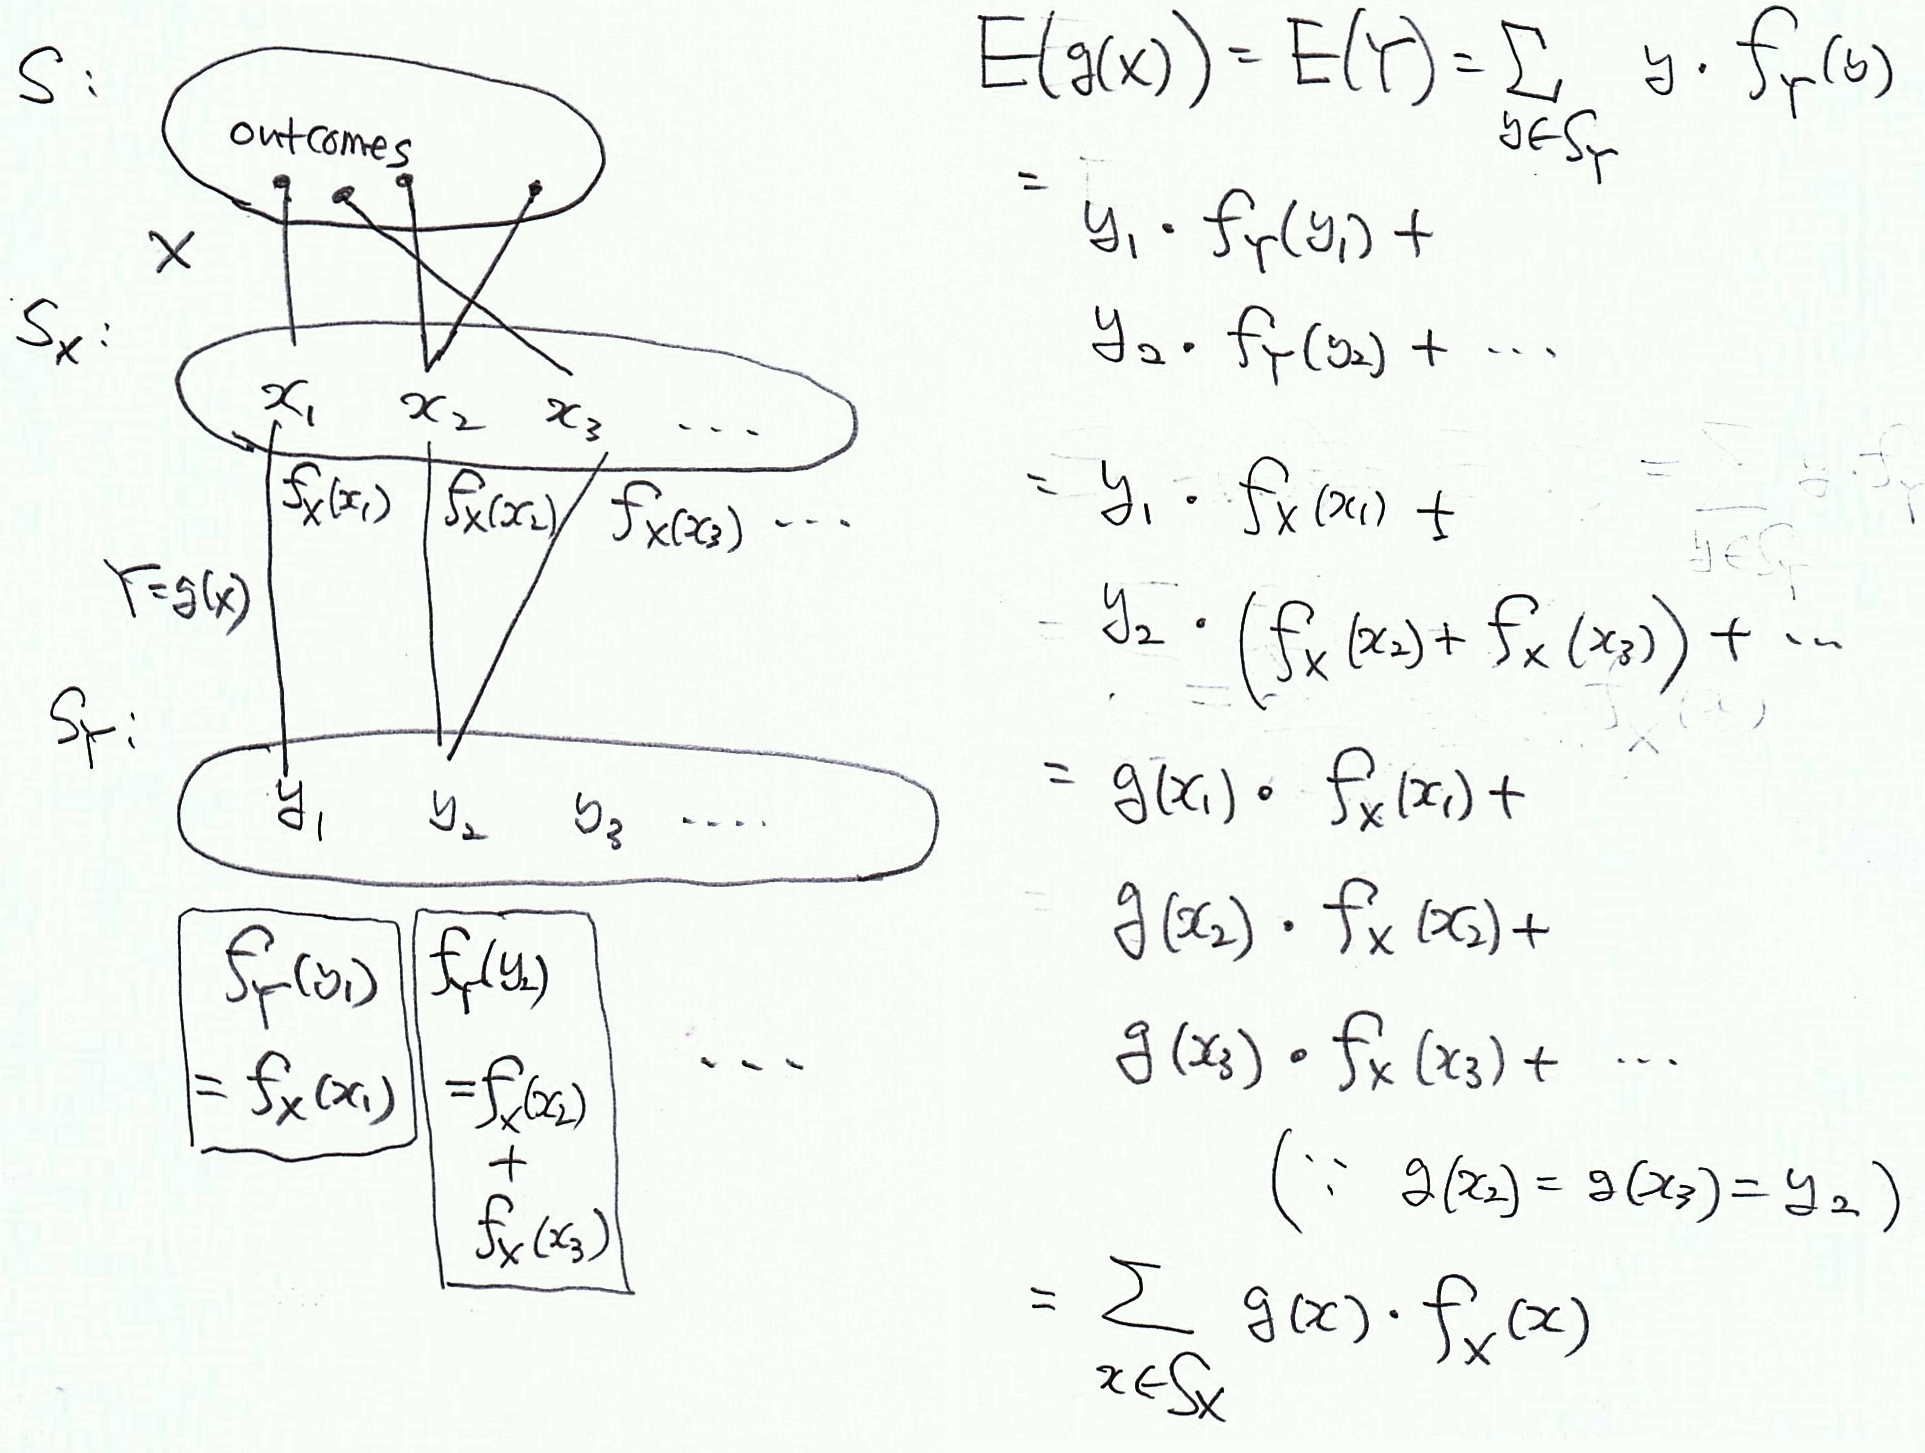 S:
outcomes
X
S_X:
x₁ x₂ x₃ ...
f_X(x₁) f_X(x₂) f_X(x₃) ...
Y=g(X)
S_Y:
y₁ y₂ y₃ ....
f_Y(y₁)
= f_X(x₁)
f_Y(y₂)
= f_X(x₂)
+
f_X(x₃)
...
E(g(X)) = E(Y) = Σ y · f_Y(y)
y∈S_Y
= y₁ · f_Y(y₁) +
y₂ · f_Y(y₂) + ...
= y₁ · f_X(x₁) +
y₂ · (f_X(x₂) + f_X(x₃)) + ...
= g(x₁) · f_X(x₁) +
g(x₂) · f_X(x₂) +
g(x₃) · f_X(x₃) + ...
(∵ g(x₂) = g(x₃) = y₂)
= Σ g(x) · f_X(x)
x∈S_X